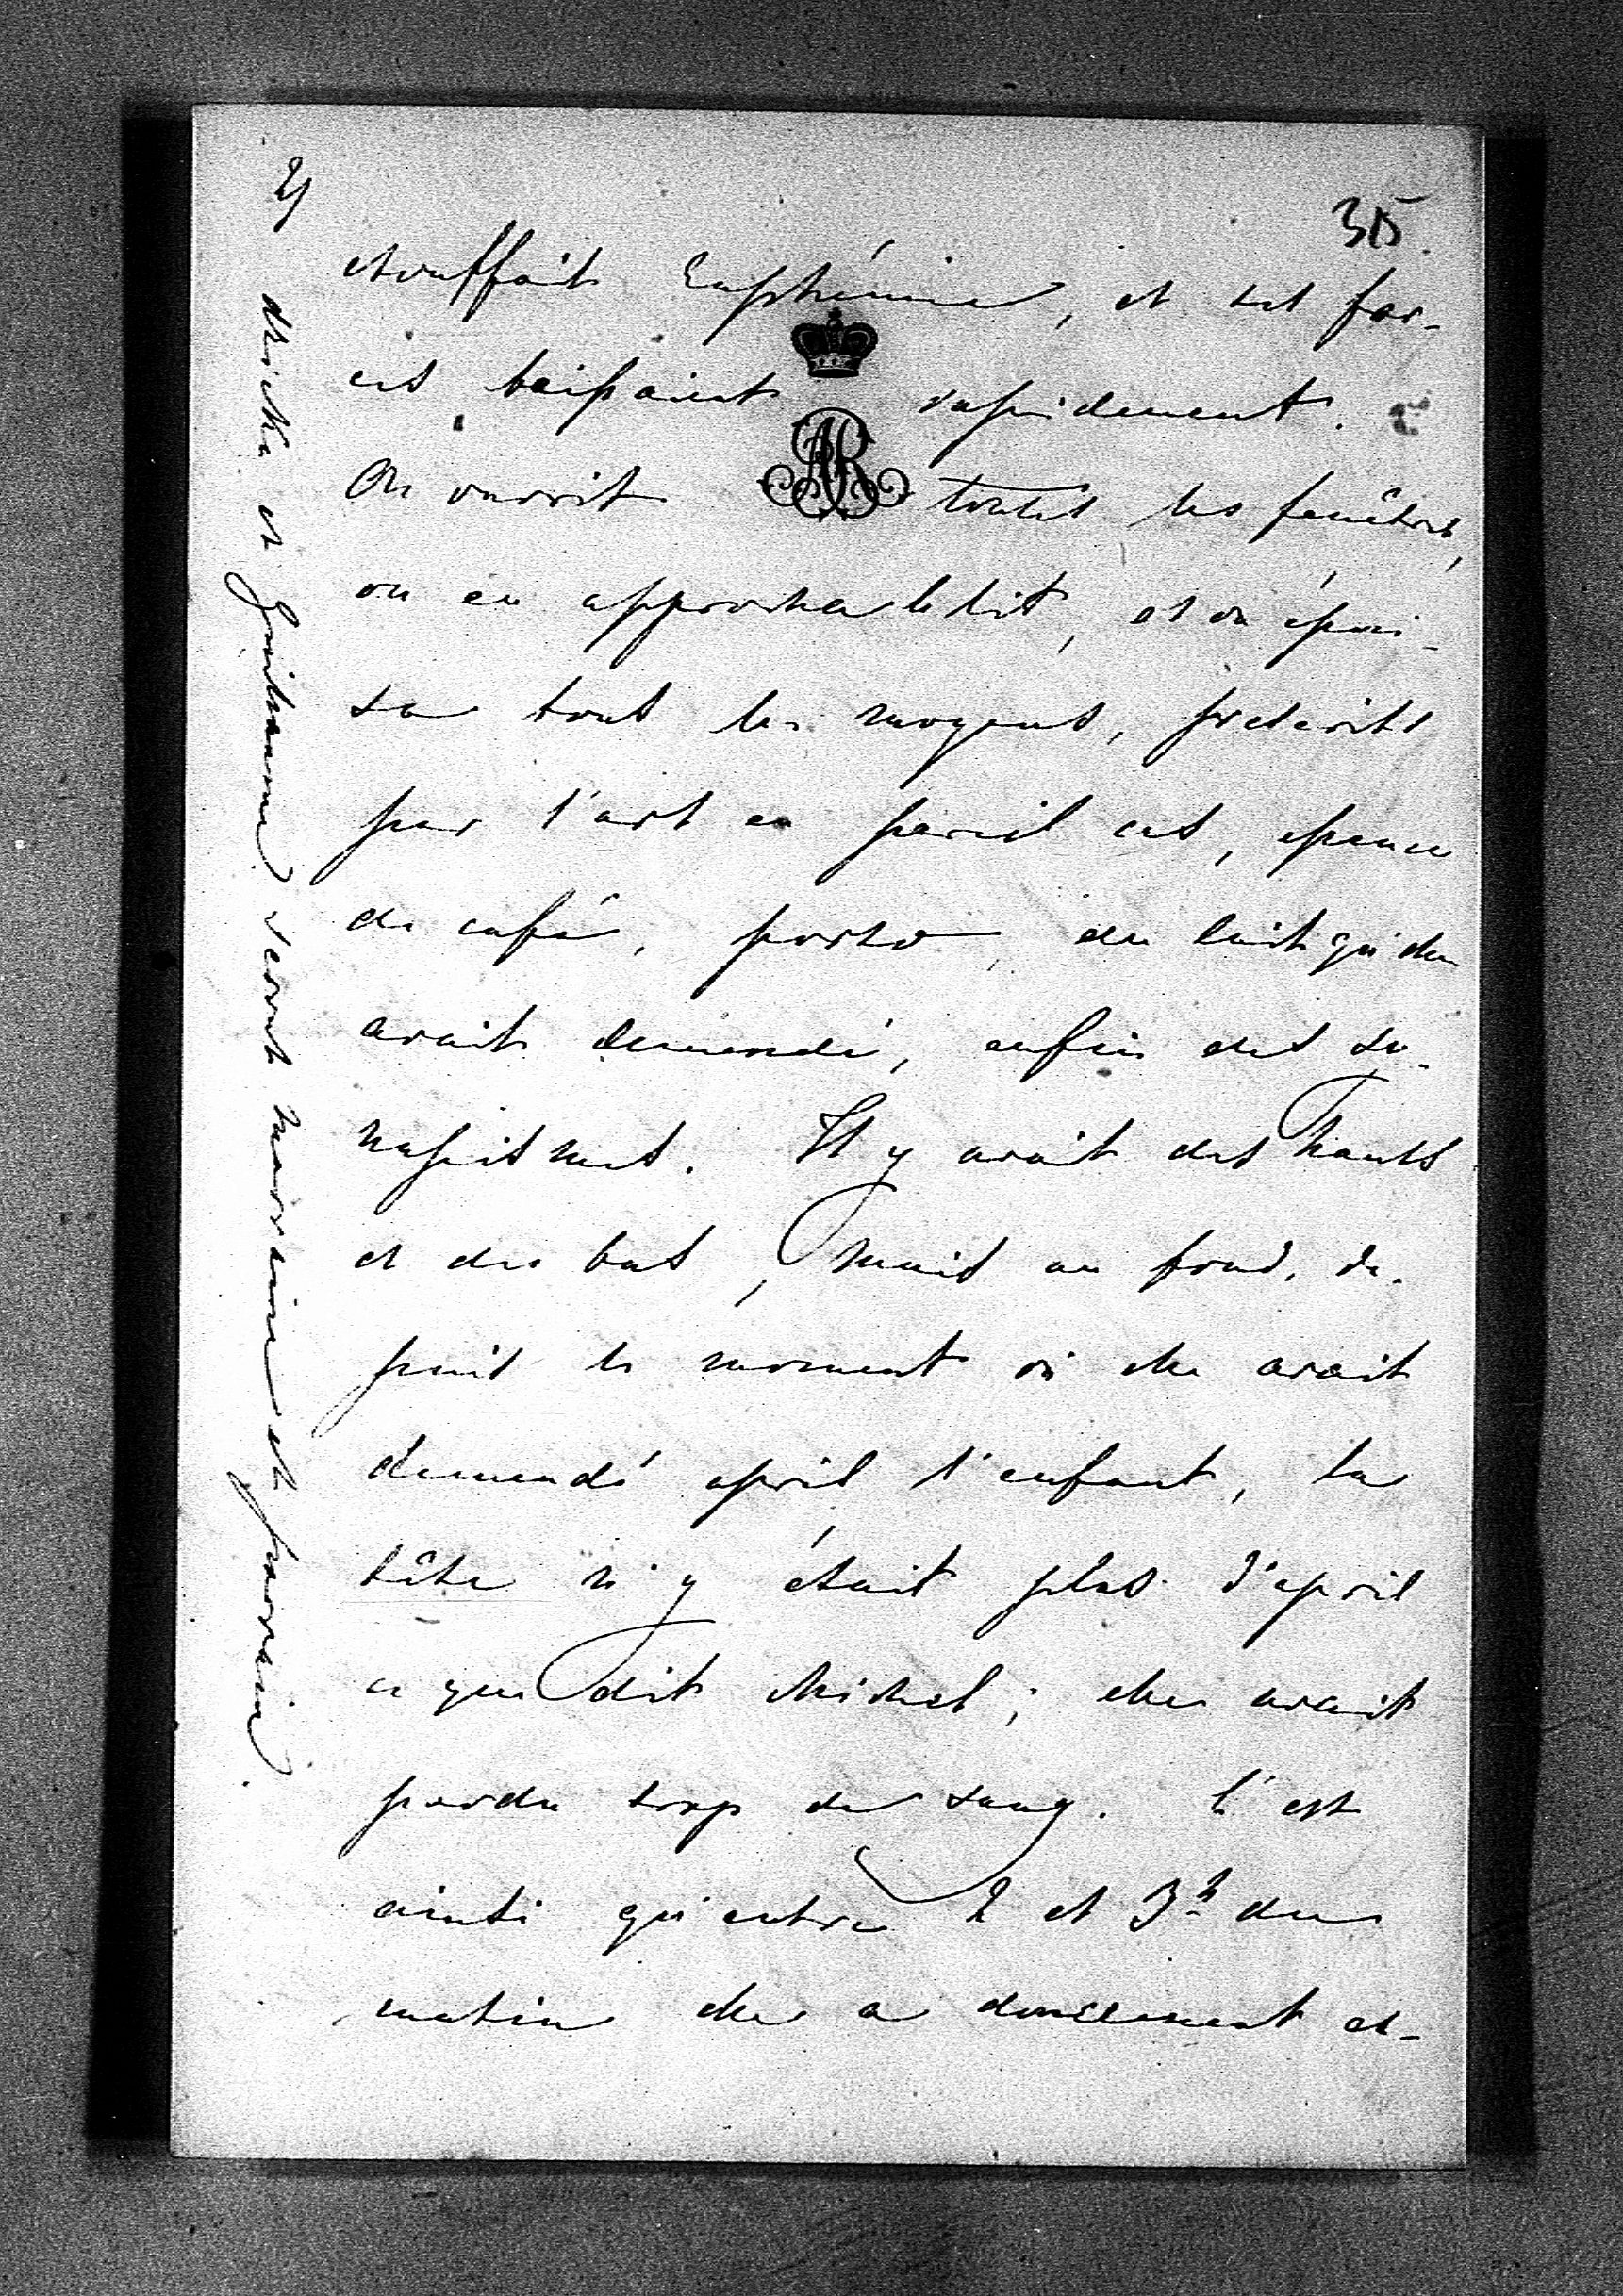 315
2)
etouffait Euphémie, et ses for-
ces baissaient rapidement.
AR
On ouvrit toutes les fenêtres,
on en approcha le lit, et on épui-
sa tout les moyens, prescrits
par l'art en pareil cas, essence
de café, porto, du lait qu'elle
avait demandé, enfin des si-
napismes. Il y avait des hauts
et des bas, mais au fond, de-
puis le moment où elle avait
demandé après l'enfant, la
tête n'y était plus d'après
ce que dit Michel; elle avait
perdu trop de sang. C'est
ainsi qu'entre 2 et 3h du
matin elle a doucement ex-
et Guillaume seront marraine et parrain.